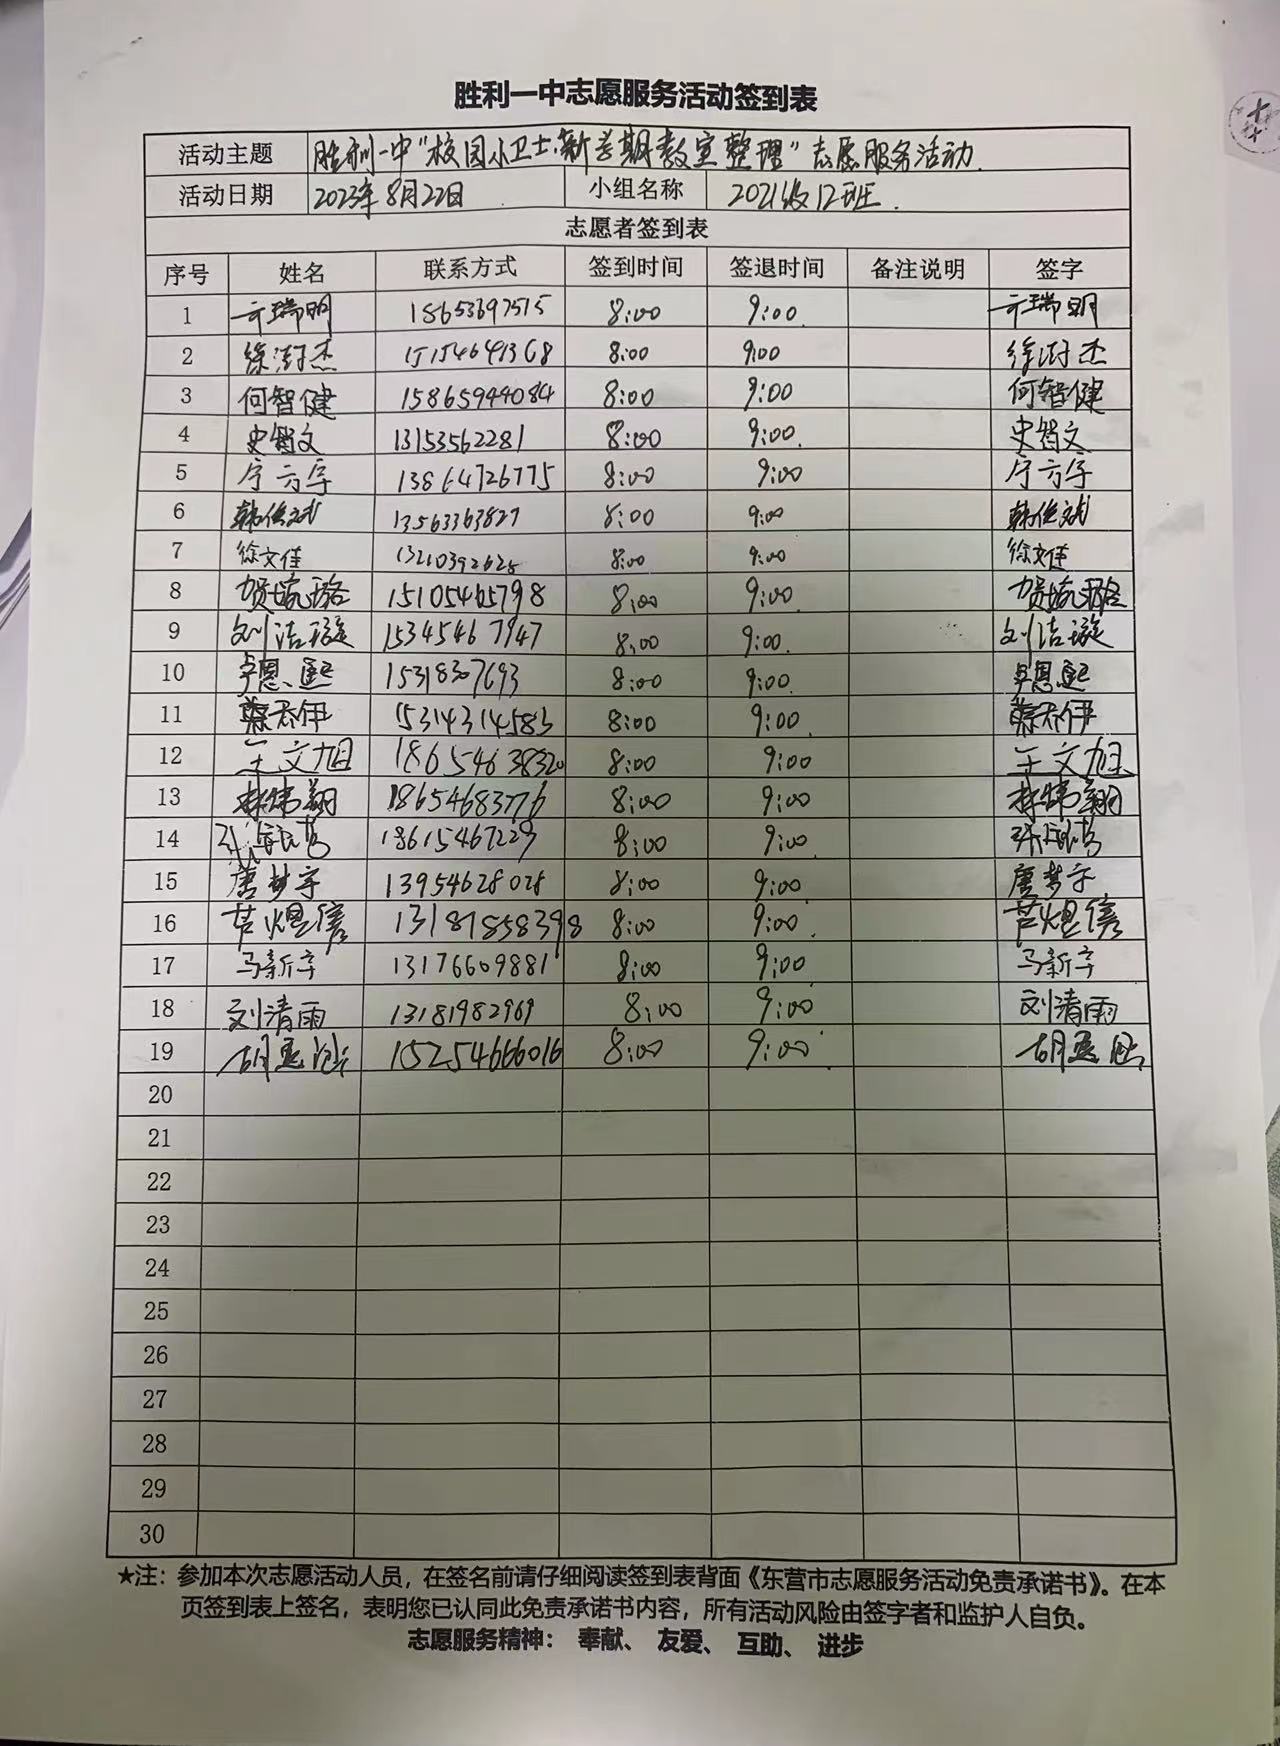 胜利一中志愿服务活动签到表
活动主题 胜利一中"校园小卫士·新学期教室整理"志愿服务活动.
活动日期 2023年8月22日 小组名称 2021级12班.
志愿者签到表
序号 姓名 联系方式 签到时间 签退时间 备注说明 签字
1 亓瑞明 18653697515 8:00 9:00 亓瑞明
2 徐澍杰 15154641368 8:00 9:00 徐澍杰
3 何智健 15865944084 8:00 9:00 何智健
4 史智文 13153562281 8:00 9:00 史智文
5 13864726775 8:00 9:00
6 韩俊斌 13563363827 8:00 9:00 韩俊斌
7 徐文佳 13210392628 8:00 9:00 徐文佳
8 贺婉璐 15105465798 8:00 9:00 贺婉璐
9 刘洁璇 15345467947 8:00 9:00 刘洁璇
10 卓恩熙 15318307693 8:00 9:00 卓恩熙
11 15314314583 8:00 9:00
12 王文旭 18654638320 8:00 9:00 王文旭
13 林炜翔 18654683776 8:00 9:00 林炜翔
14 18615467229 8:00 9:00
15 唐梦宇 13954628028 8:00 9:00 唐梦宇
16 芦煜儒 13181858398 8:00 9:00 芦煜儒
17 马新宇 13176609881 8:00 9:00 马新宇
18 刘清雨 13181982969 8:00 9:00 刘清雨
19 15254666016 8:00 9:00
20
21
22
23
24
25
26
27
28
29
30
★注：参加本次志愿活动人员，在签名前请仔细阅读签到表背面《东营市志愿服务活动免责承诺书》。在本
页签到表上签名，表明您已认同此免责承诺书内容，所有活动风险由签字者和监护人自负。
志愿服务精神： 奉献、 友爱、 互助、 进步